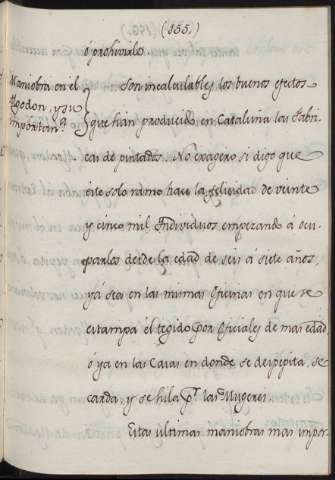 (155.)
ó prohivirlo.
Maniobra en el
Algodon, y su
importan.ª
Son incalculables los buenos efectos
que han producido en Cataluña las Fabri-
cas de pintados. No exagero si digo que
este solo ramo hace la felicidad de veinte
y cinco mil Individuos empezando á ocu-
parlos desde la edad de seis á siete años,
yá sea en las mismas oficinas en que se
estampa el tegido por oficiales de mas edad
ó ya en las Casas en donde se despepita, se
carda, y se hila p.r las Mugeres.
Estas ultimas maniobras mas impor-